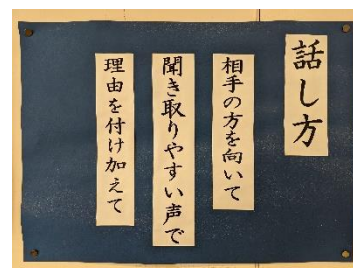 話し方
相手の方を向いて
聞き取りやすい声で
理由を付け加えて